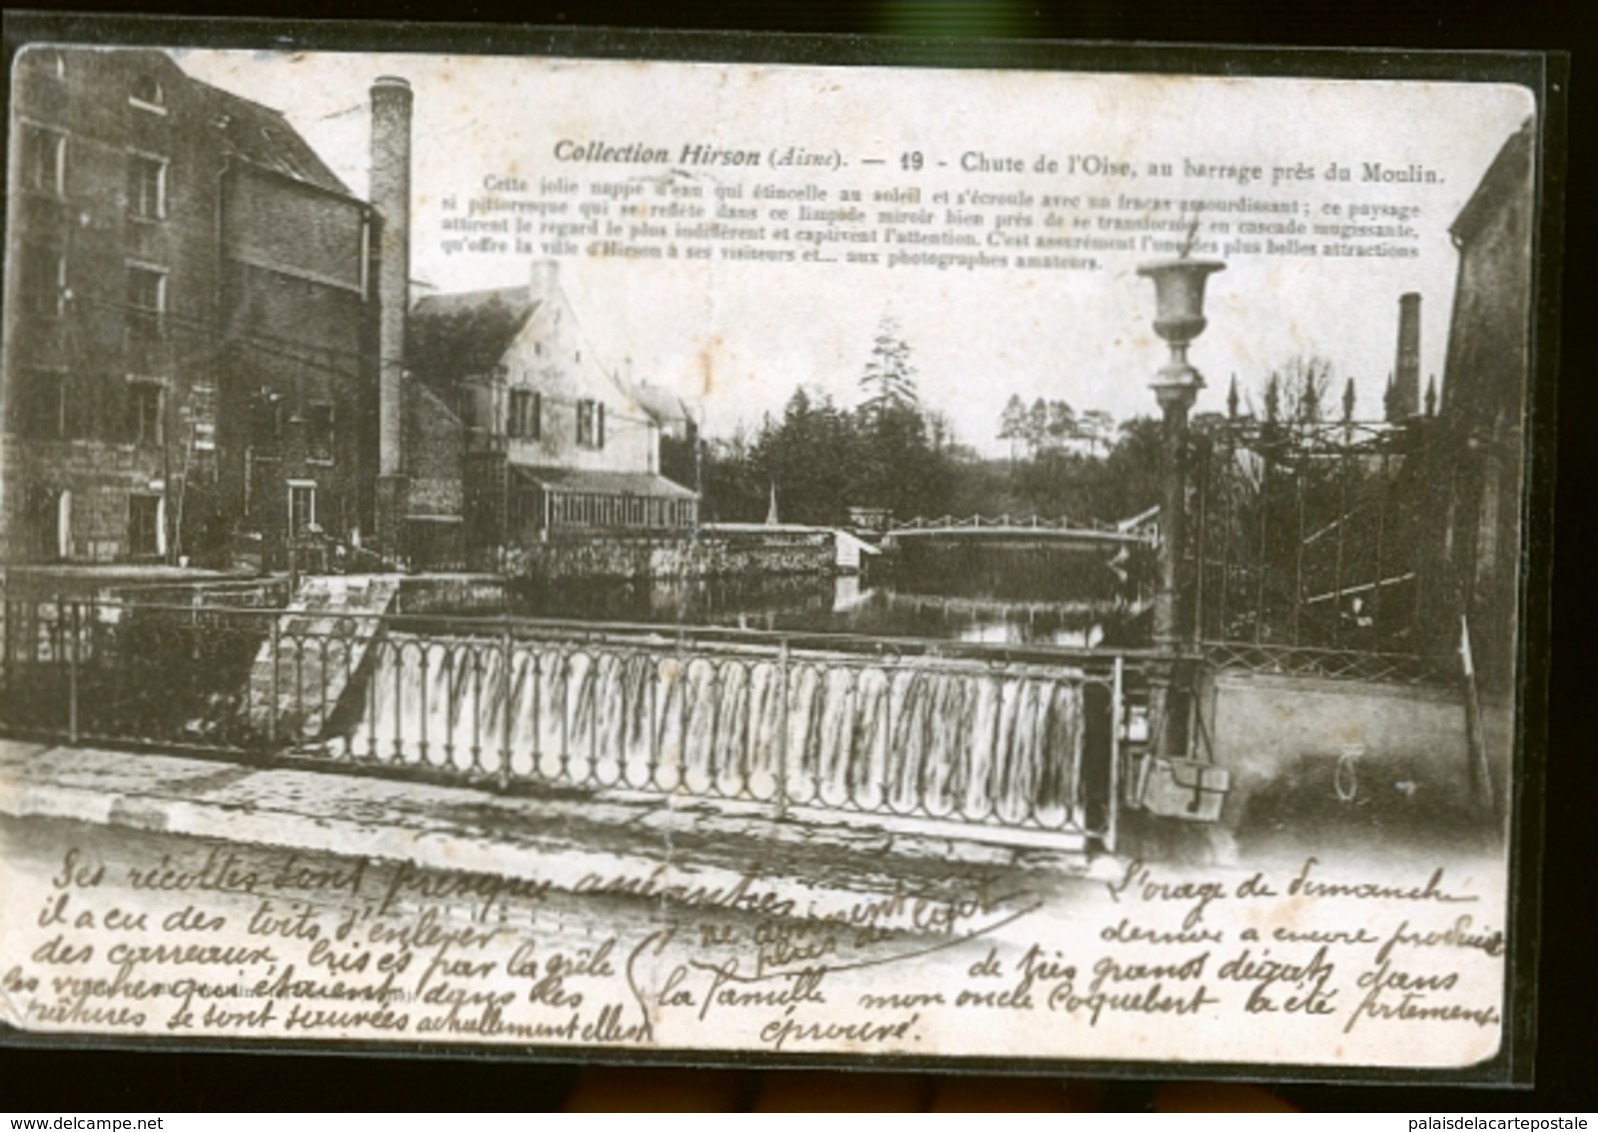 Collection Hirson (Aisne). — 19 - Chute de l'Oise, au barrage près du Moulin.
Cette jolie nappe d'eau qui étincelle au soleil et s'écroule avec un fracas assourdissant; ce paysage
si pittoresque qui se reflète dans ce limpide miroir bien près de se transformer en cascade mugissante,
attirent le regard le plus indifférent et captivent l'attention. C'est assurément l'une des plus belles attractions
qu'offre la ville d'Hirson à ses visiteurs et... aux photographes amateurs.
L'orage de Dimanche
dernier a encore produit
de très grands dégats dans
la famille mon oncle Coquebert a été fortement
éprouvé.
Ses récoltes sont presque anéanties
il a eu des toits d'enlever
des carreaux brisés par la grêle
les vaches qui étaient dans les
patures se sont sauvées actuellement elles
ne donnent
plus de lait
palaisdelacartepostale
delcampe.net